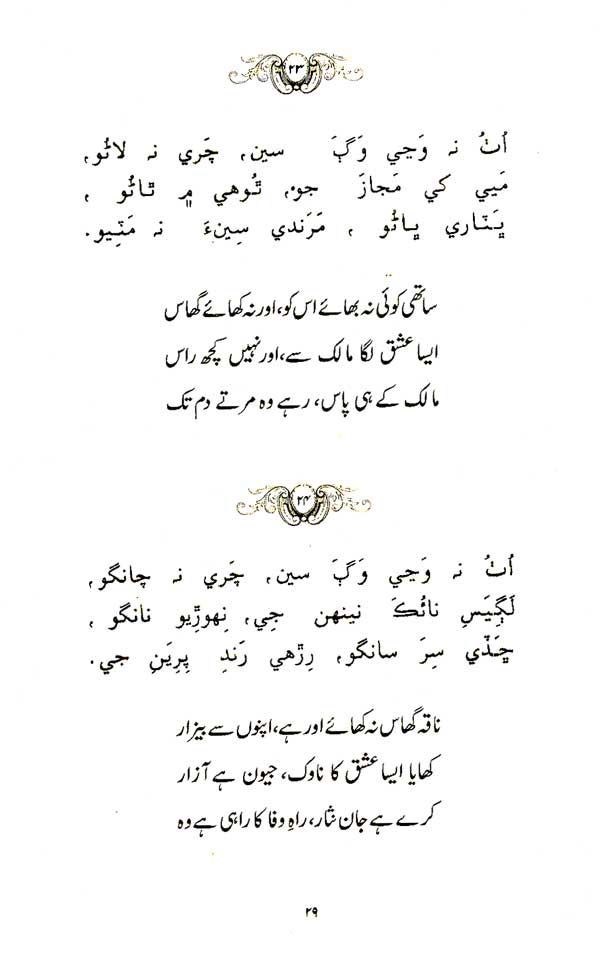 ۲۳
اُٺُ نہ وَڃي وَڳَ سين، چَري نہ لاڻُو،
مَيي کي مَجازَ جو، تُوهي ۾ ٿاڻُو ،
ڀَٽاري ڀاڻُو ، مَرَندي سِينءَ نہ مَٽِيو.
ساتھی کوئی نہ بھائے اس کو، اور نہ کھائے گھاس
ایسا عشق لگا مالک سے، اور نہیں کچھ راس
مالک کے ہی پاس، رہے وہ مرتے دم تک
۲۴
اُٺُ نہ وَڃي وَڳَ سين، چَري نہ چانگو،
لَڳِيَسِ نائُڪَ نينهن جي، نِهوڙِيو نانگو ،
ڇَڏي سِرَ سانگو، رِڙهي رَندِ پِرِيَنِ جي.
ناقہ گھاس نہ کھائے اور ہے، اپنوں سے بیزار
کھایا ایسا عشق کا ناوک، جیون ہے آزار
کرے ہے جان نثار، راہِ وفا کا راہی ہے وہ
۲۹